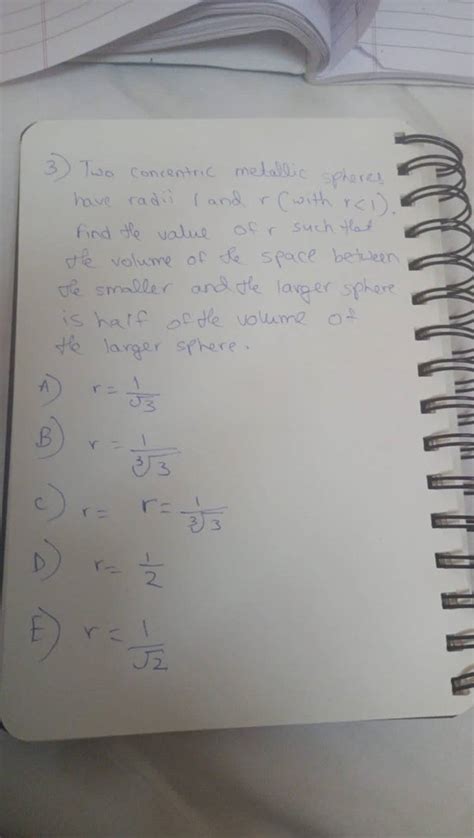 3) Two concentric metallic spheres
have radii 1 and r (with r<1).
Find the value of r such that
the volume of the space between
the smaller and the larger sphere
is half of the volume of
the larger sphere.
A) r = 1/√3
B) r = 1/∛3
C) r = r = 1/∛3
D) r = 1/2
E) r = 1/√2